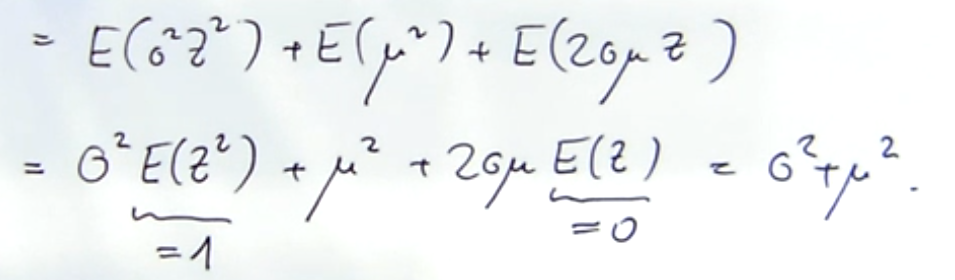 = E(σ²Z²) + E(μ²) + E(2σμZ)
= σ²E(Z²) + μ² + 2σμE(Z) = σ²+μ².
=1 =0